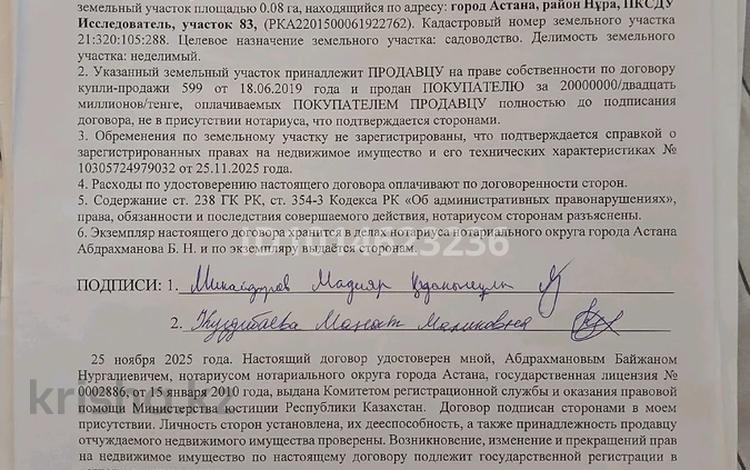 земельный участок площадью 0.08 га, находящийся по адресу: город Астана, район Нұра, ПКСДУ
Исследователь, участок 83, (РКА2201500061922762). Кадастровый номер земельного участка
21:320:105:288. Целевое назначение земельного участка: садоводство. Делимость земельного
участка: неделимый.
2. Указанный земельный участок принадлежит ПРОДАВЦУ на праве собственности по договору
купли-продажи 599 от 18.06.2019 года и продан ПОКУПАТЕЛЮ за 20000000/двадцать
миллионов/тенге, оплачиваемых ПОКУПАТЕЛЕМ ПРОДАВЦУ полностью до подписания
договора, не в присутствии нотариуса, что подтверждается сторонами.
3. Обременения по земельному участку не зарегистрированы, что подтверждается справкой о
зарегистрированных правах на недвижимое имущество и его технических характеристиках №
10305724979032 от 25.11.2025 года.
4. Расходы по удостоверению настоящего договора оплачивают по договоренности сторон.
5. Содержание ст. 238 ГК РК, ст. 354-3 Кодекса РК «Об административных правонарушениях»,
права, обязанности и последствия совершаемого действия, нотариусом сторонам разъяснены.
6. Экземпляр настоящего договора хранится в делах нотариуса нотариального округа города Астана
Абдрахманова Б. Н. и по экземпляру выдаётся сторонам.
ПОДПИСИ: 1. Мадияр
2. Маликовна
25 ноября 2025 года. Настоящий договор удостоверен мной, Абдрахмановым Байжаном
Нургалиевичем, нотариусом нотариального округа города Астана, государственная лицензия №
0002886, от 15 января 2010 года, выдана Комитетом регистрационной службы и оказания правовой
помощи Министерства юстиции Республики Казахстан. Договор подписан сторонами в моем
присутствии. Личность сторон установлена, их дееспособность, а также принадлежность продавцу
отчуждаемого недвижимого имущества проверены. Возникновение, изменение и прекращений прав
на недвижимое имущество по настоящему договору подлежит государственной регистрации в
krisha.kz